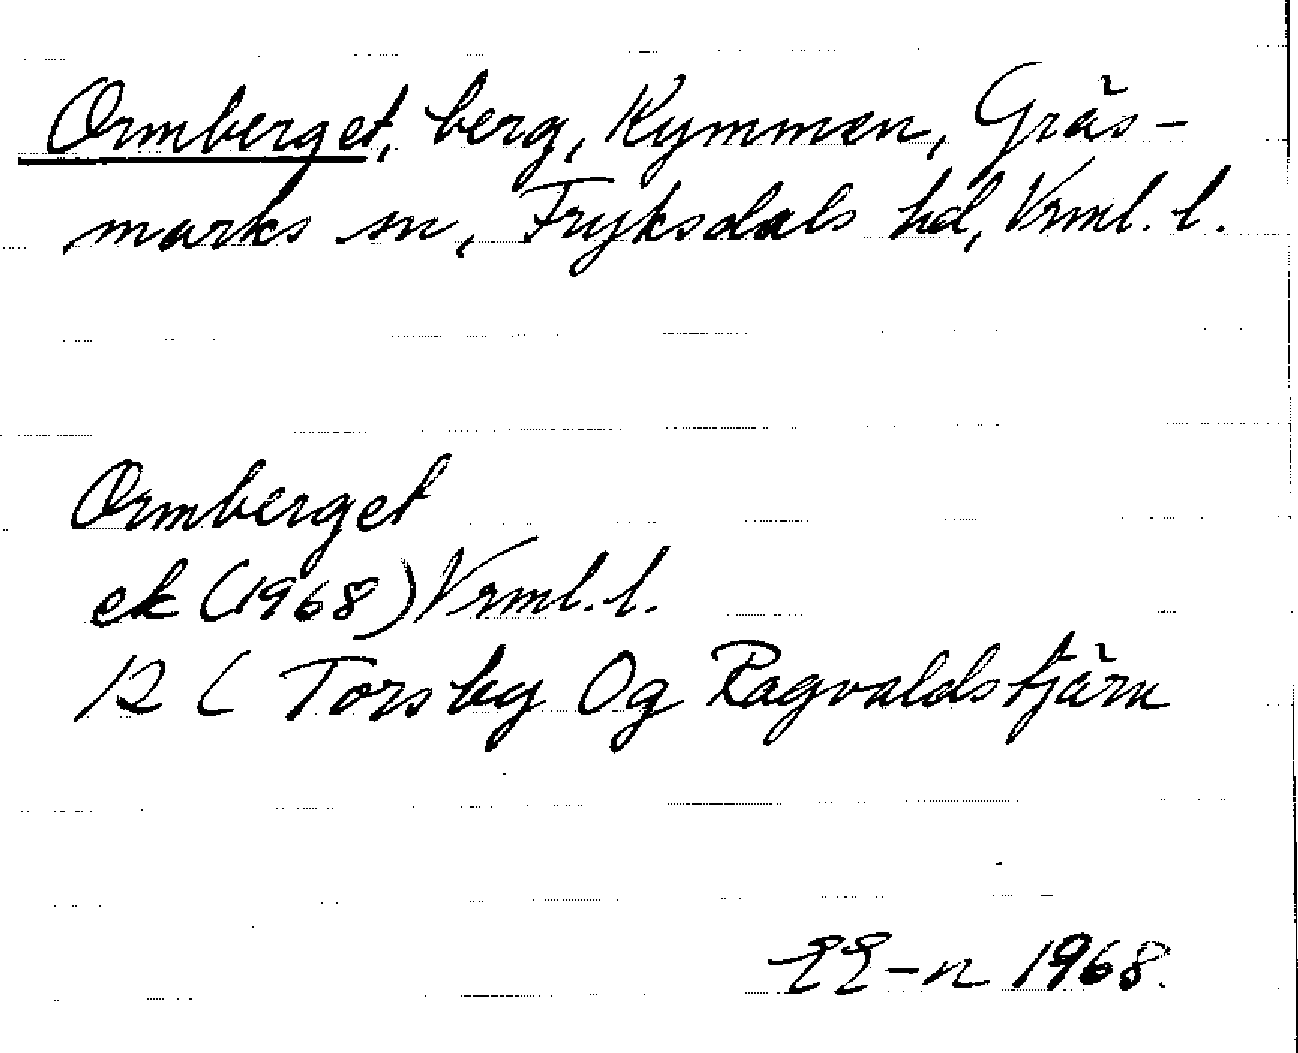 Ormberget, berg, Kymmen, Gräs-
marks sn, Fryksdals hd, Vrml. l.
Ormberget
ek (1968) Vrml. l.
12 C Torsby Og Ragvaldstjärn
EE-n 1968.